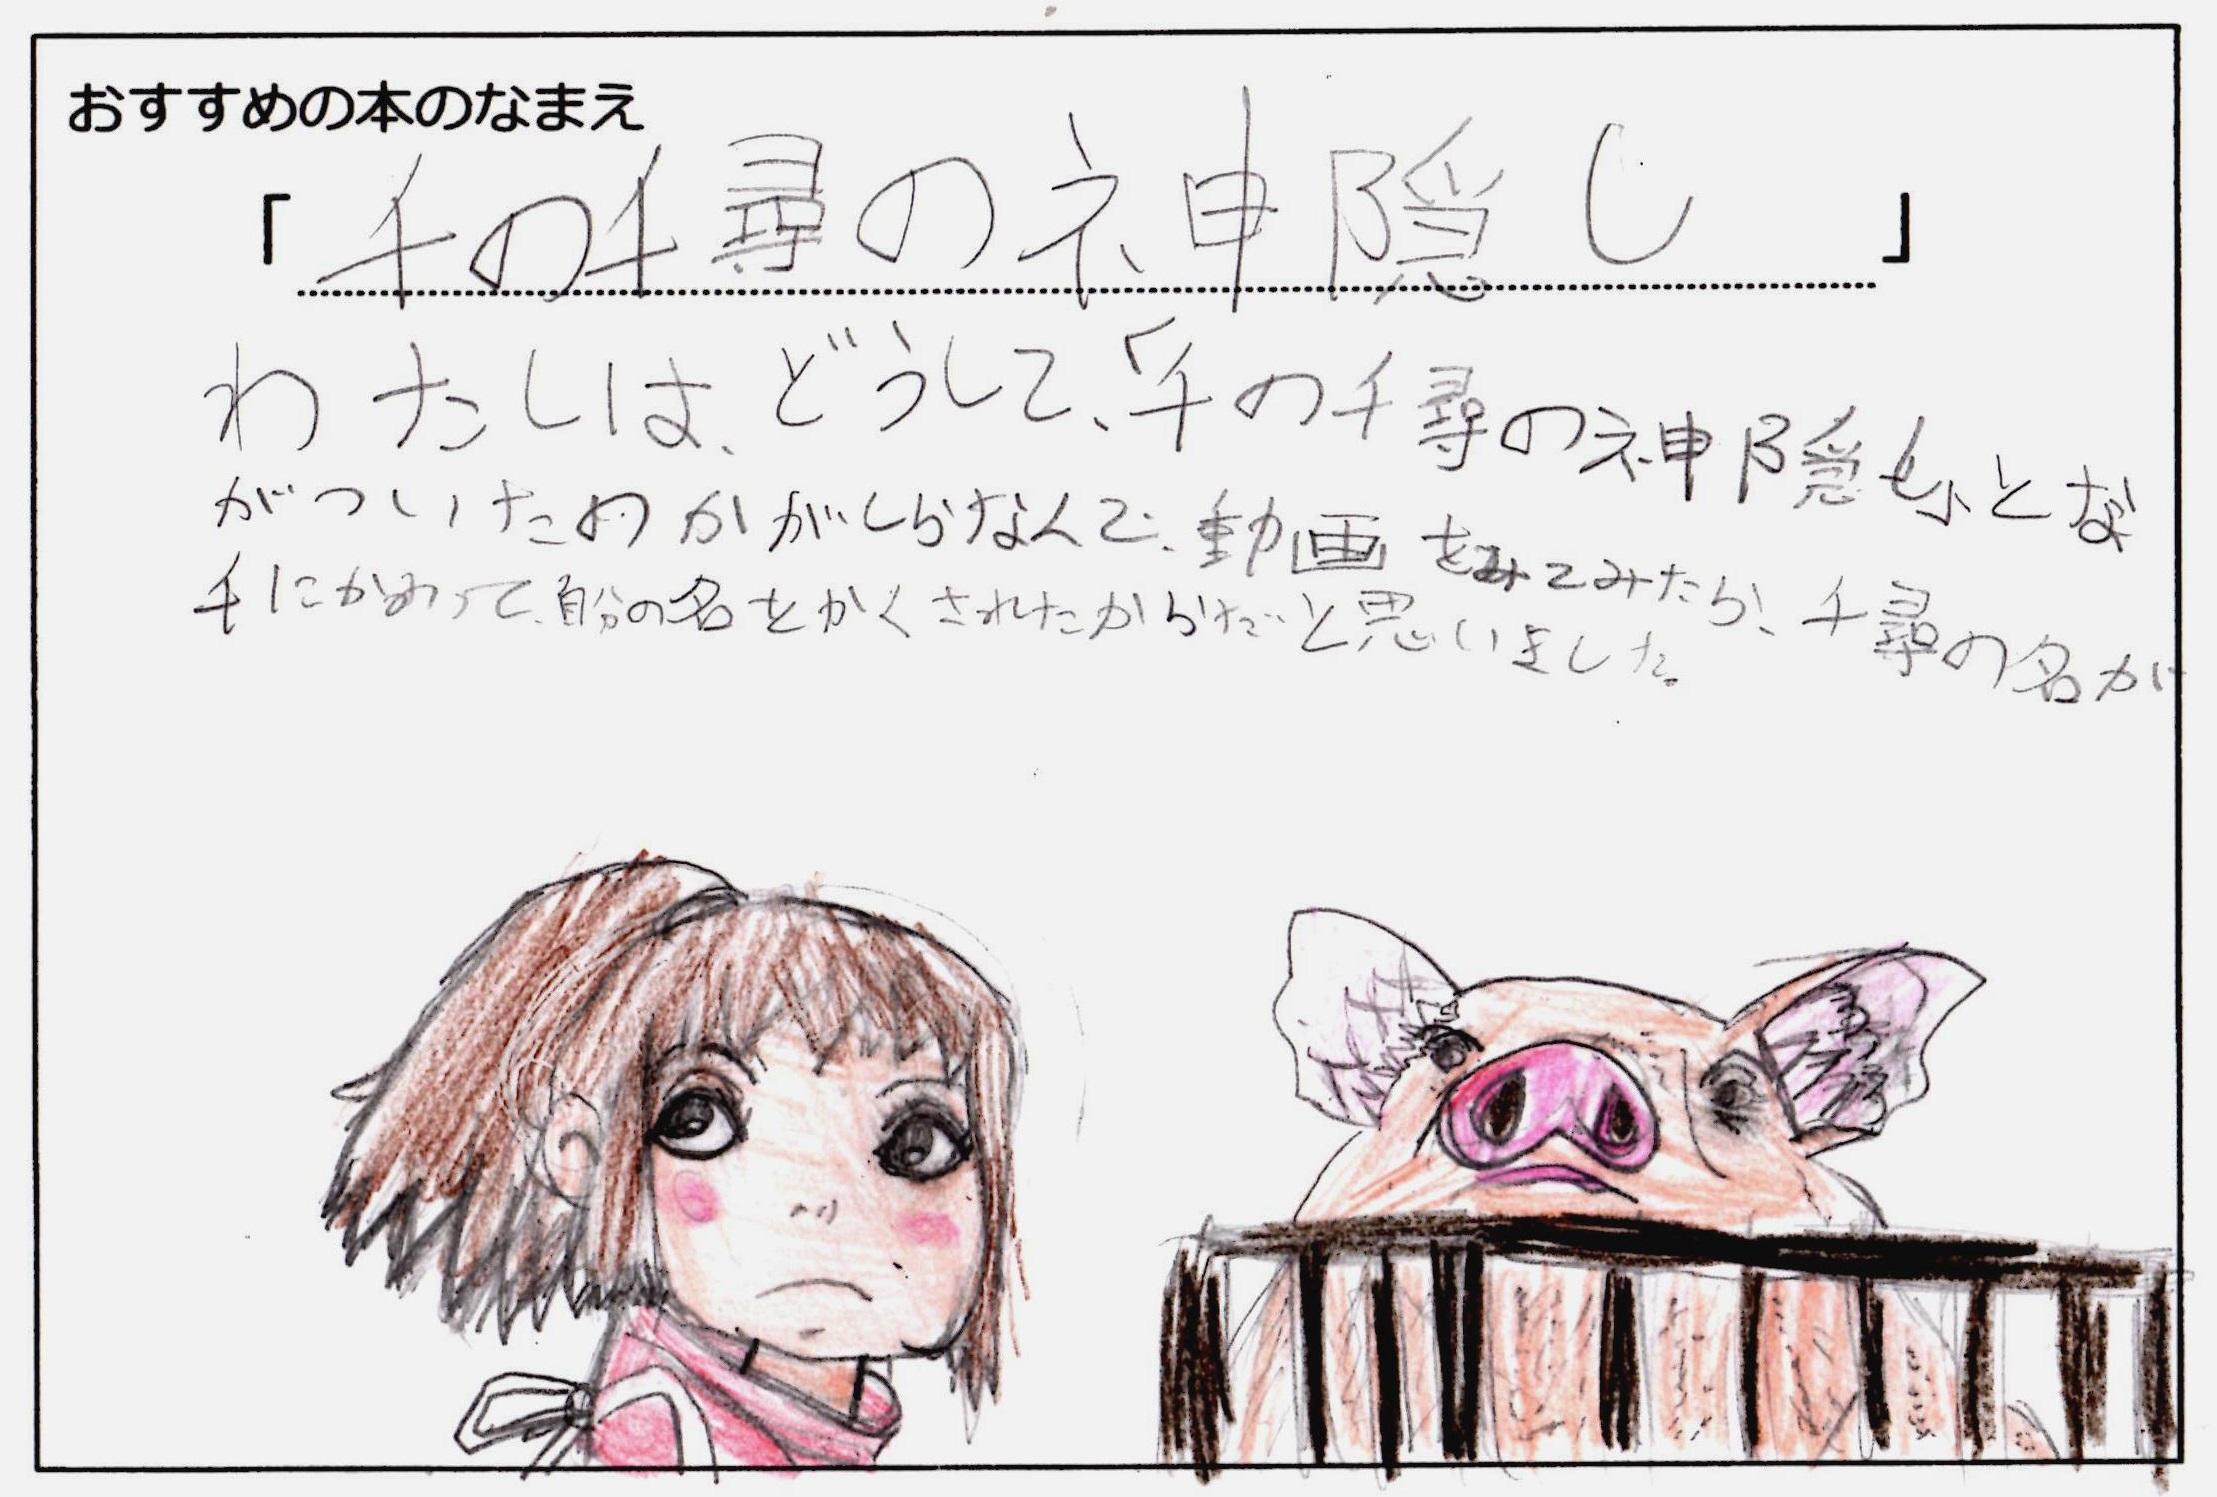 おすすめの本のなまえ
「千の千尋の神隠し」
わたしは、どうして、「千の千尋の神隠し」とな
がついたのかがしらなんで、動画をみてみたら、千尋の名が
千にかわって、自分の名をかくされたからだと思いました。